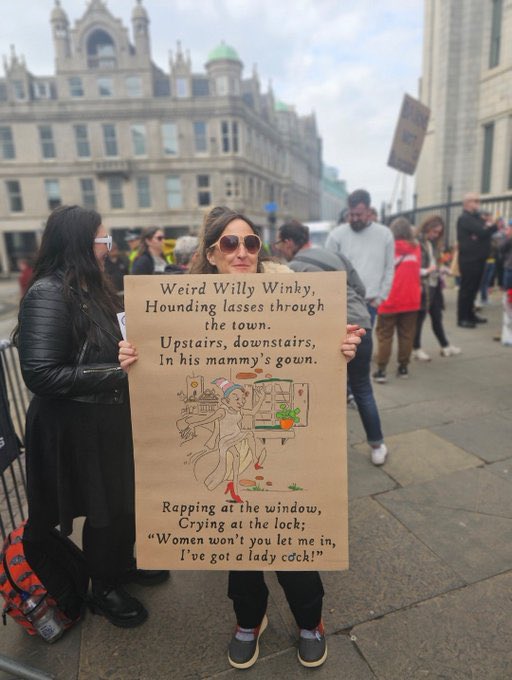 Weird Willy Winky,
Hounding lasses through
the town.
Upstairs, downstairs,
In his mammy's gown.
Rapping at the window,
Crying at the lock;
"Women won't you let me in,
I've got a lady cock!"